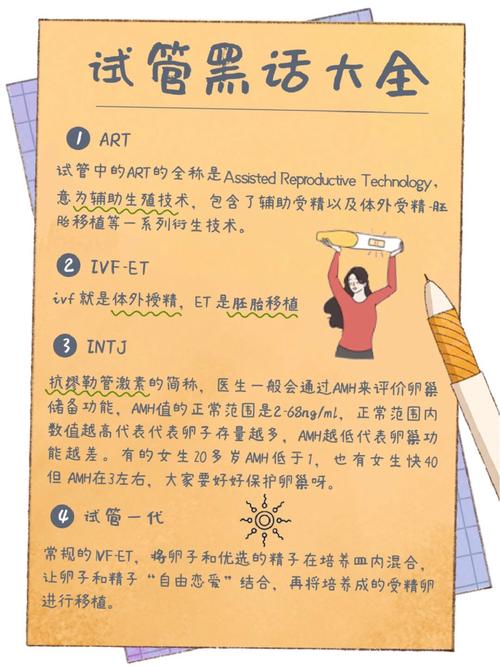 试管黑话大全
1 ART
试管中的ART的全称是Assisted Reproductive Technology,
意为辅助生殖技术，包含了辅助受精以及体外受精-胚
胎移植等一系列衍生技术。
2 IVF-ET
ivf 就是体外授精，ET 是胚胎移植
3 INTJ
抗缪勒管激素的简称，医生一般会通过AMH来评价卵巢
储备功能，AMH值的正常范围是2-68ng/ml，正常范围内
数值越高代表代表卵子存量越多，AMH越低代表卵巢功
能越差。有的女生20多岁AMH低于1，也有女生快40
但AMH在3左右，大家要好好保护卵巢呀。
4 试管一代
常规的IVF-ET，将卵子和优选的精子在培养皿内混合，
让卵子和精子“自由恋爱”结合，再将培养成的受精卵
进行移植。